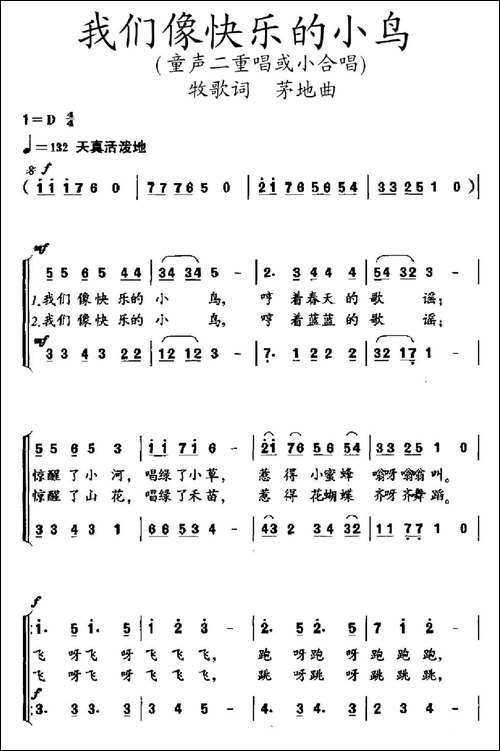 我们像快乐的小鸟
(童声二重唱或小合唱)
牧歌词 茅地曲
1=D 4/4
♩=132 天真活泼地
f
( i i i 7 6 0 | 7 7 7 6 5 0 | 2 1 7 6 5 6 5 4 | 3 3 2 5 1 0 ) |
mf
5 5 6 5 4 4 | 3 4 3 4 5 - | 2. 3 4 4 4 | 5 4 3 2 3 - |
1.我们像快乐的小 鸟, 哼 着春天的歌 谣;
2.我们像快乐的小 鸟, 哼 着蓝蓝的歌 谣;
mf
3 3 4 3 2 2 | 1 2 1 2 3 - | 7. 1 2 2 2 | 3 2 1 7 1 - |
5 5 6 5 3 | i i 7 i 6 - | 2 i 7 6 5 6 5 4 | 3 3 2 5 1 0 |
惊醒了小河, 唱绿了小草, 惹 得 小蜜蜂 嗡呀嗡嗡叫。
惊醒了山花, 唱绿了禾苗, 惹 得 花蝴蝶 齐呀齐舞蹈。
3 3 4 3 1 | 6 6 5 3 4 - | 4 3 2 3 4 3 2 | 1 1 7 7 1 0 |
f
i. 5 i. 5 | i i 2 3 - | 2. 5 2. 5 | 7 i 2 - |
飞 呀飞 呀飞飞飞, 跑 呀跑 呀跑跑跑,
飞 呀飞 呀飞飞飞, 跳 呀跳 呀跳跳跳,
f
3. 3 3. 3 | 3 4 5 - | 4. 4 4. 4 | 2 3 4 - |